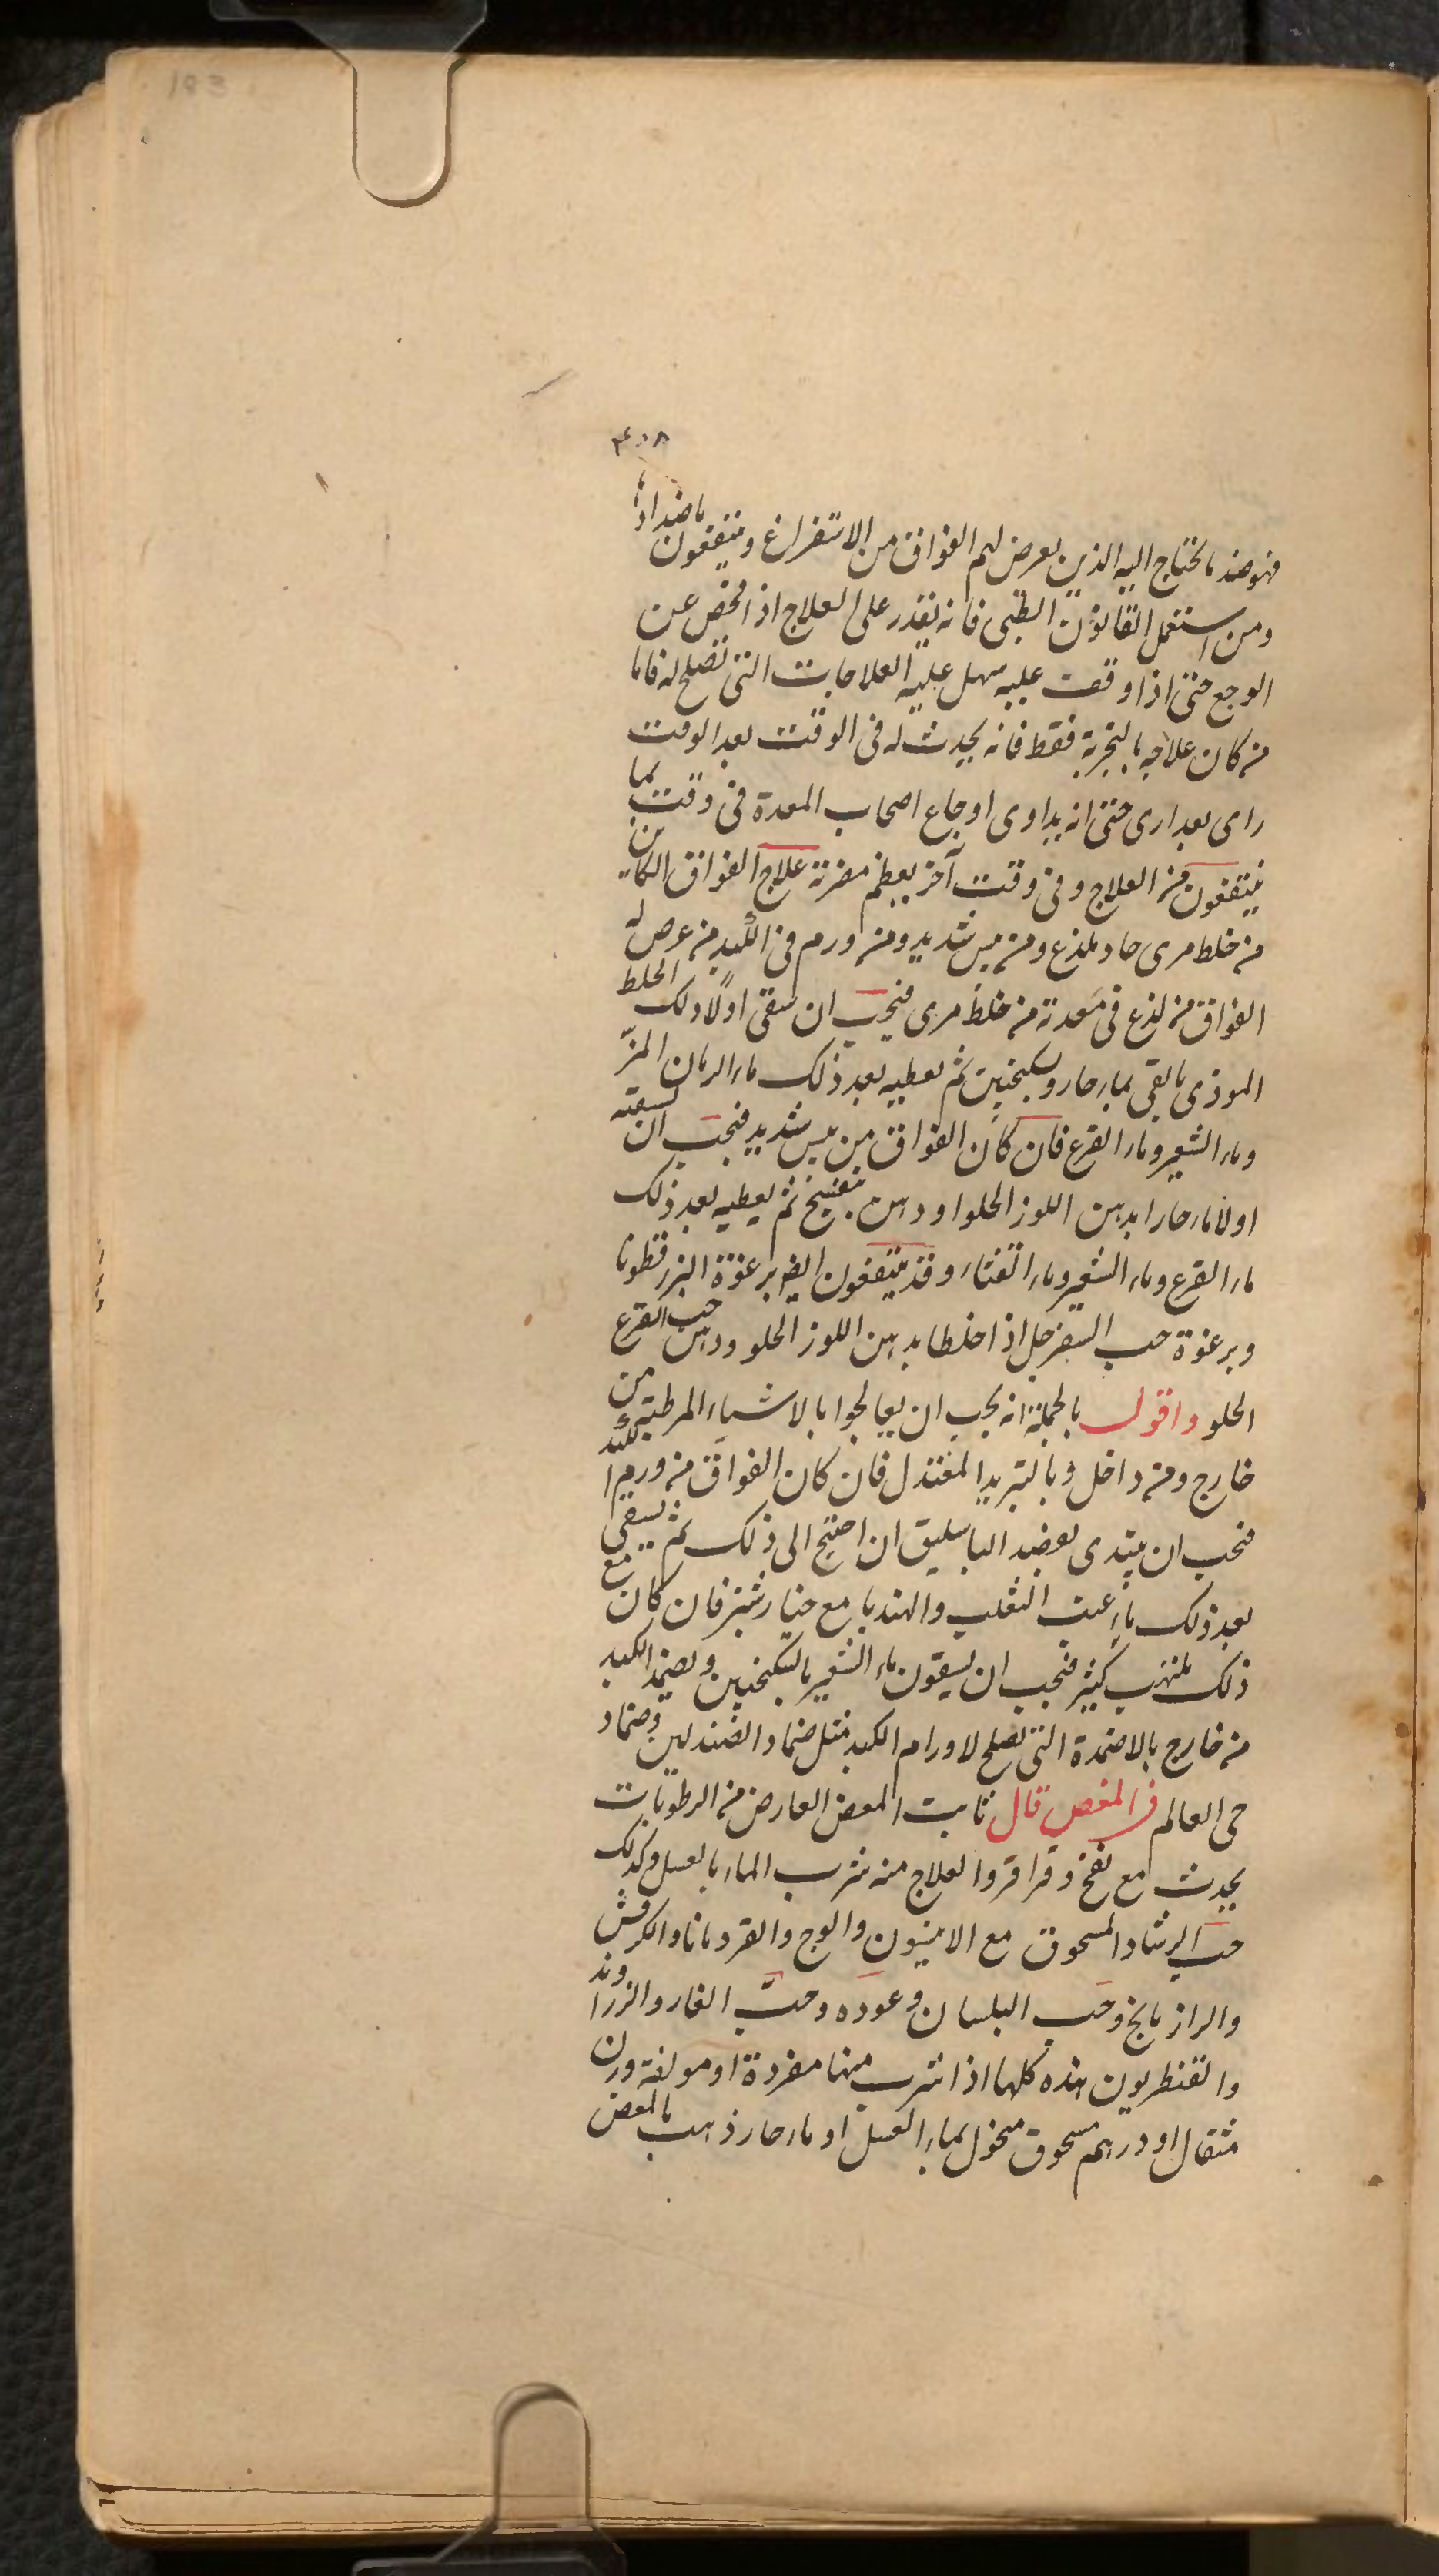 183
٤٠٨
فهو ضد ما يحتاج اليه الذين يعرض لهم الفواق من الاستفراغ وينتفعون باضداد
ومن استعمل القانون الطبى فانه يقدر على العلاج اذا فحص عن
الوجع حتى اذا وقف عليه سهل عليه العلاجات التى تصلح له فاما
من كان علاجه بالتجربة فقط فانه يحدث له فى الوقت بعد الوقت
راى بعد راى حتى انه يداوى اوجاع اصحاب المعدة فى وقت بما
ينتفعون من العلاج وفى وقت آخر يعظم مضرته علاج الفواق الكاين
من خلط مرى حاد يلذع ومن يبس شديد ومن ورم فى الكبد من عرض له
الفواق من لذع فى معدته من خلط مرى فيجب ان يسقى اولا ذلك الخلط
الموذى بالقى بماء حار وسكنجبين ثم يعطيه بعد ذلك ماء الرمان المز
وماء الشعير وماء القرع فان كان الفواق من يبس شديد فيجب ان يسقيه
اولا ماء حارا بدهن اللوز الحلو او دهن بنفسج ثم يعطيه بعد ذلك
ماء القرع وماء الشعير وماء القثاء وقد ينتفعون ايضا برغوة البزرقطونا
وبرغوة حب السفرجل اذا خلطا بدهن اللوز الحلو ودهن حب القرع
الحلو واقول بالجملة انه يجب ان يعالجوا بالاشياء المرطبة من
خارج ومن داخل وبالتبريد المعتدل فان كان الفواق من ورم الكبد
فيجب ان يبتدى بفصد الباسليق ان احتيج الى ذلك ثم يسقى
بعد ذلك ماء عنب الثعلب والهندبا مع خيار شنبر فان كان مع
ذلك تلهب كثير فيجب ان يسقون ماء الشعير بالسكنجبين ويضمد الكبد
من خارج بالاضمدة التى تصلح لاورام الكبد مثل ضماد الصندلين وضماد
حى العالم فى المغص قال ثابت المغص العارض من الرطوبات
يحدث مع نفخ وقراقر والعلاج منه شرب الماء بالعسل وكذلك
حب الرشاد المسحوق مع الانيسون والوج والقردمانا والكرفس
والرازيانج وحب البلسان وعوده وحب الغار والزراوند
والقنطريون هذه كلها اذا شرب منها مفردة او مولفة وزن
مثقال او درهم مسحوق منخول بماء العسل او ماء حار ذهب بالمغص